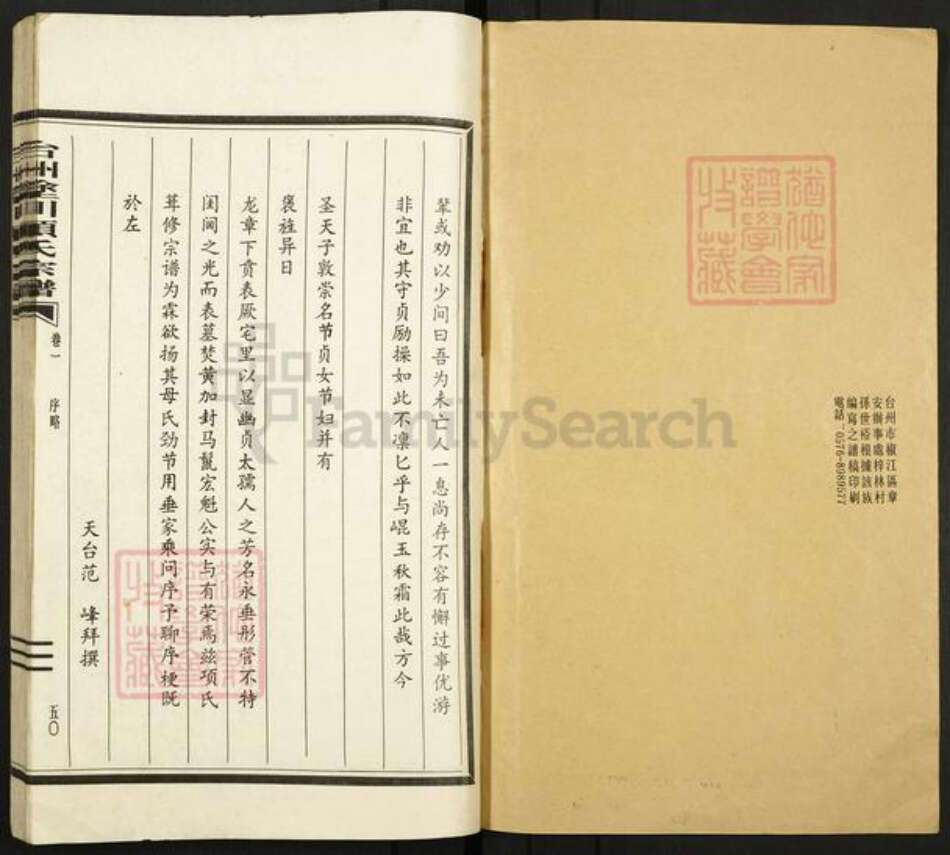 辈或劝以少间曰吾为未亡人一息尚存不容有懈过事优游
非宜也其守贞励操如此不凛匕乎与崐玉秋霜此哉方今
圣天子敦崇名节贞女节妇并有
褒旌异日
龙章下贲表厥宅里以显幽贞太孺人之芳名永垂彤管不特
闺阃之光而表墓焚黄加封马鬣宏魁公实与有荣焉兹项氏
葺修宗谱为霖欲扬其母氏劲节用垂家乘问序予聊序梗既
於左
天台范 峰拜撰
台州塗川項氏宗譜
卷一 序略
五〇
台州市椒江區章
安辦事處梓林村
孫世裕根據該族
編寫之譜稿印刷
電話：0576-8989577
猶他家
譜學會
收藏
猶他家
譜學會
收藏
FamilySearch